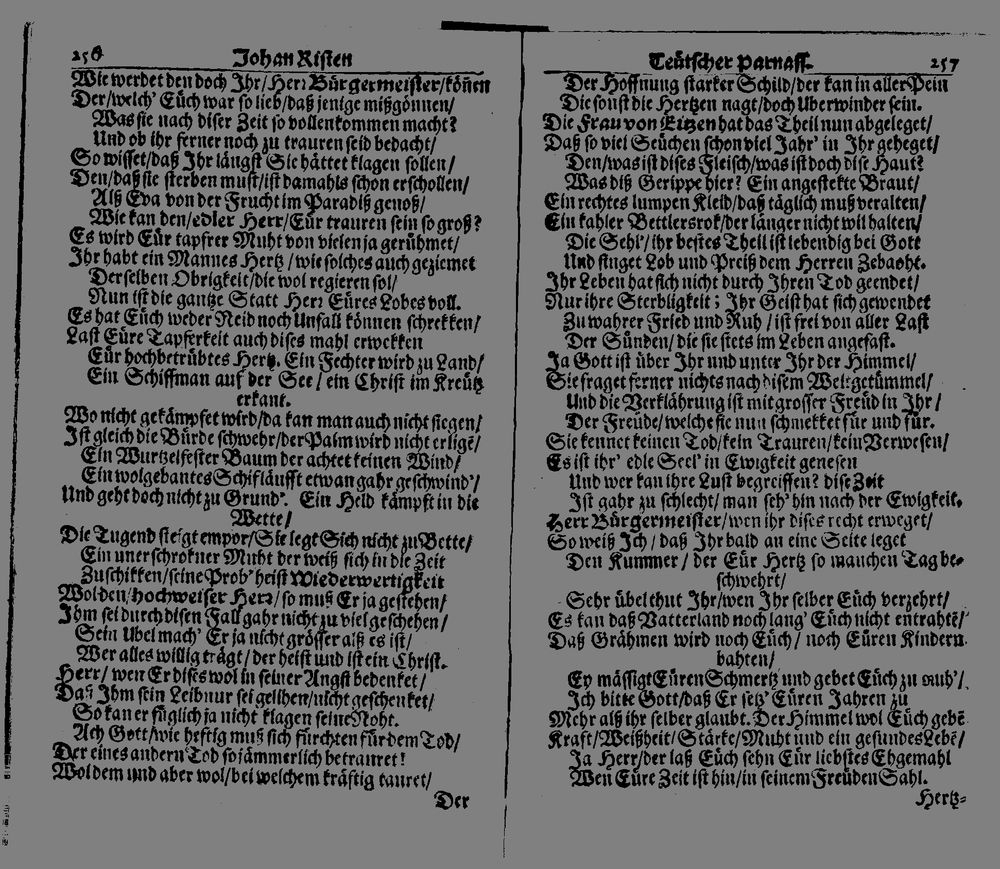 256 Johan Risten
Wie werdet den doch Ihr/Herr Bürgermeister/köñen
Der/welch' Eüch war so lieb/daß jenige mißgönnen/
Was sie nach diser Zeit so vollenkommen macht?
Und ob ihr ferner noch zu trauren seid bedacht/
So wisset/daß Ihr längst Sie hättet klagen sollen/
Den/daß sie sterben must/ist damahls schon erschollen/
Alß Eva von der Frucht im Paradiß genoß/
Wie kan den/edler Herr/Eür trauren sein so groß?
Es wird Eür tapfrer Muht von vielen ja gerühmet/
Ihr habt ein Mannes Hertz/wie solches auch geziemet
Derselben Obrigkeit/die wol regieren sol/
Nun ist die gantze Statt Herr Eüres Lobes voll.
Es hat Eüch weder Neid noch Unfall können schrekken/
Last Eüre Tapferkeit auch dieses mahl erwekken
Eür hochbetrübtes Hertz. Ein Fechter wird zu Land/
Ein Schiffman auf der See/ein Christ im Kreütz
erkant.
Wo nicht gekämpfet wird/da kan man auch nicht siegen/
Ist gleich die Bürde schwehr/der Palm wird nicht erligē/
Ein Wurtzelfester Baum der achtet keinen Wind/
Ein wolgebantes Schif läufft etwan gahr geschwind'/
Und geht doch nicht zu Grund'. Ein Held kämpft in die
Wette/
Die Tugend steigt empor/Sie legt Sich nicht zu Bette/
Ein unerschrokner Muht der weiß sich in die Zeit
Zuschikken/seine Prob' heist Wiederwertigkeit
Wol den/hochweiser Herr/so muß Er ja gestehen/
Ihm sei durch disen Fall gahr nicht zu viel geschehen/
Sein Ubel mach' Er ja nicht grösser alß es ist/
Wer alles willig trägt/der heist und ist ein Christ.
Herr/wen Er dises wol in seiner Angst bedenket/
Daß Ihm sein Leib nur sei gelihen/nicht geschenket/
So kan er füglich ja nicht klagen seine Noht.
Ach Gott/wie heftig muß sich fürchten für dem Tod/
Der eines andern Tod so jämmerlich betrauret!
Wol dem und aber wol/bei welchem kräftig tauret/
Der
Teütscher Parnass. 257
Der Hoffnung starker Schild/der kan in aller Pein
Die sonst die Hertzen nagt/doch Uberwinder sein.
Die Frau von Eitzen hat das Theil nun abgeleget/
Daß so viel Seüchen schon viel Jahr' in Ihr geheget/
Den/was ist dises Fleisch/was ist doch dise Haut?
Was diß Gerippe hier? Ein angestekte Braut/
Ein rechtes lumpen Kleid/daß täglich muß veralten/
Ein kahler Bettlersrok/der länger nicht wil halten/
Die Sehl'/ihr bestes Theil ist lebendig bei Gott
Und singet Lob und Preiß dem Herren Zebaoht.
Ihr Leben hat sich nicht durch Ihren Tod geendet/
Nur ihre Sterbligkeit; Ihr Geist hat sich gewendet
Zu wahrer Fried und Ruh/ist frei von aller Last
Der Sünden/die sie stets im Leben angefast.
Ja Gott ist über Ihr und unter Ihr der Himmel/
Sie fraget ferner nichts nach disem Weltgetümmel/
Und die Verklährung ist mit grosser Freüd in Ihr/
Der Freüde/welche sie nun schmekket für und für.
Sie kennet keinen Tod/kein Trauren/kein Verwesen/
Es ist ihr' edle Seel' in Ewigkeit genesen
Und wer kan ihre Lust begreiffen? dise Zeit
Ist gahr zu schlecht/man seh' hin nach der Ewigkeit.
Herr Bürgermeister/wen ihr dises recht erweget/
So weiß Ich/daß Ihr bald an eine Seite leget
Den Kummer/der Eür Hertz so manchen Tag be-
schwehrt/
Sehr übel thut Ihr/wen Ihr selber Eüch verzehrt/
Es kan daß Vatterland noch lang' Eüch nicht entrahtē/
Daß Grähmen wird noch Eüch/noch Eüren Kindern
bahten/
Ey mässigt Eüren Schmertz und gebet Eüch zu ruh'/
Ich bitte Gott/daß Er setz' Eüren Jahren zu
Mehr alß ihr selber glaubt. Der Himmel wol Eüch gebē
Kraft/Weißheit/Stärke/Muht und ein gesundes Lebē/
Ja Herr/der laß Eüch sehn Eür liebstes Ehgemahl
Wen Eüre Zeit ist hin/in seinem Freüden Sahl.
Hertz-